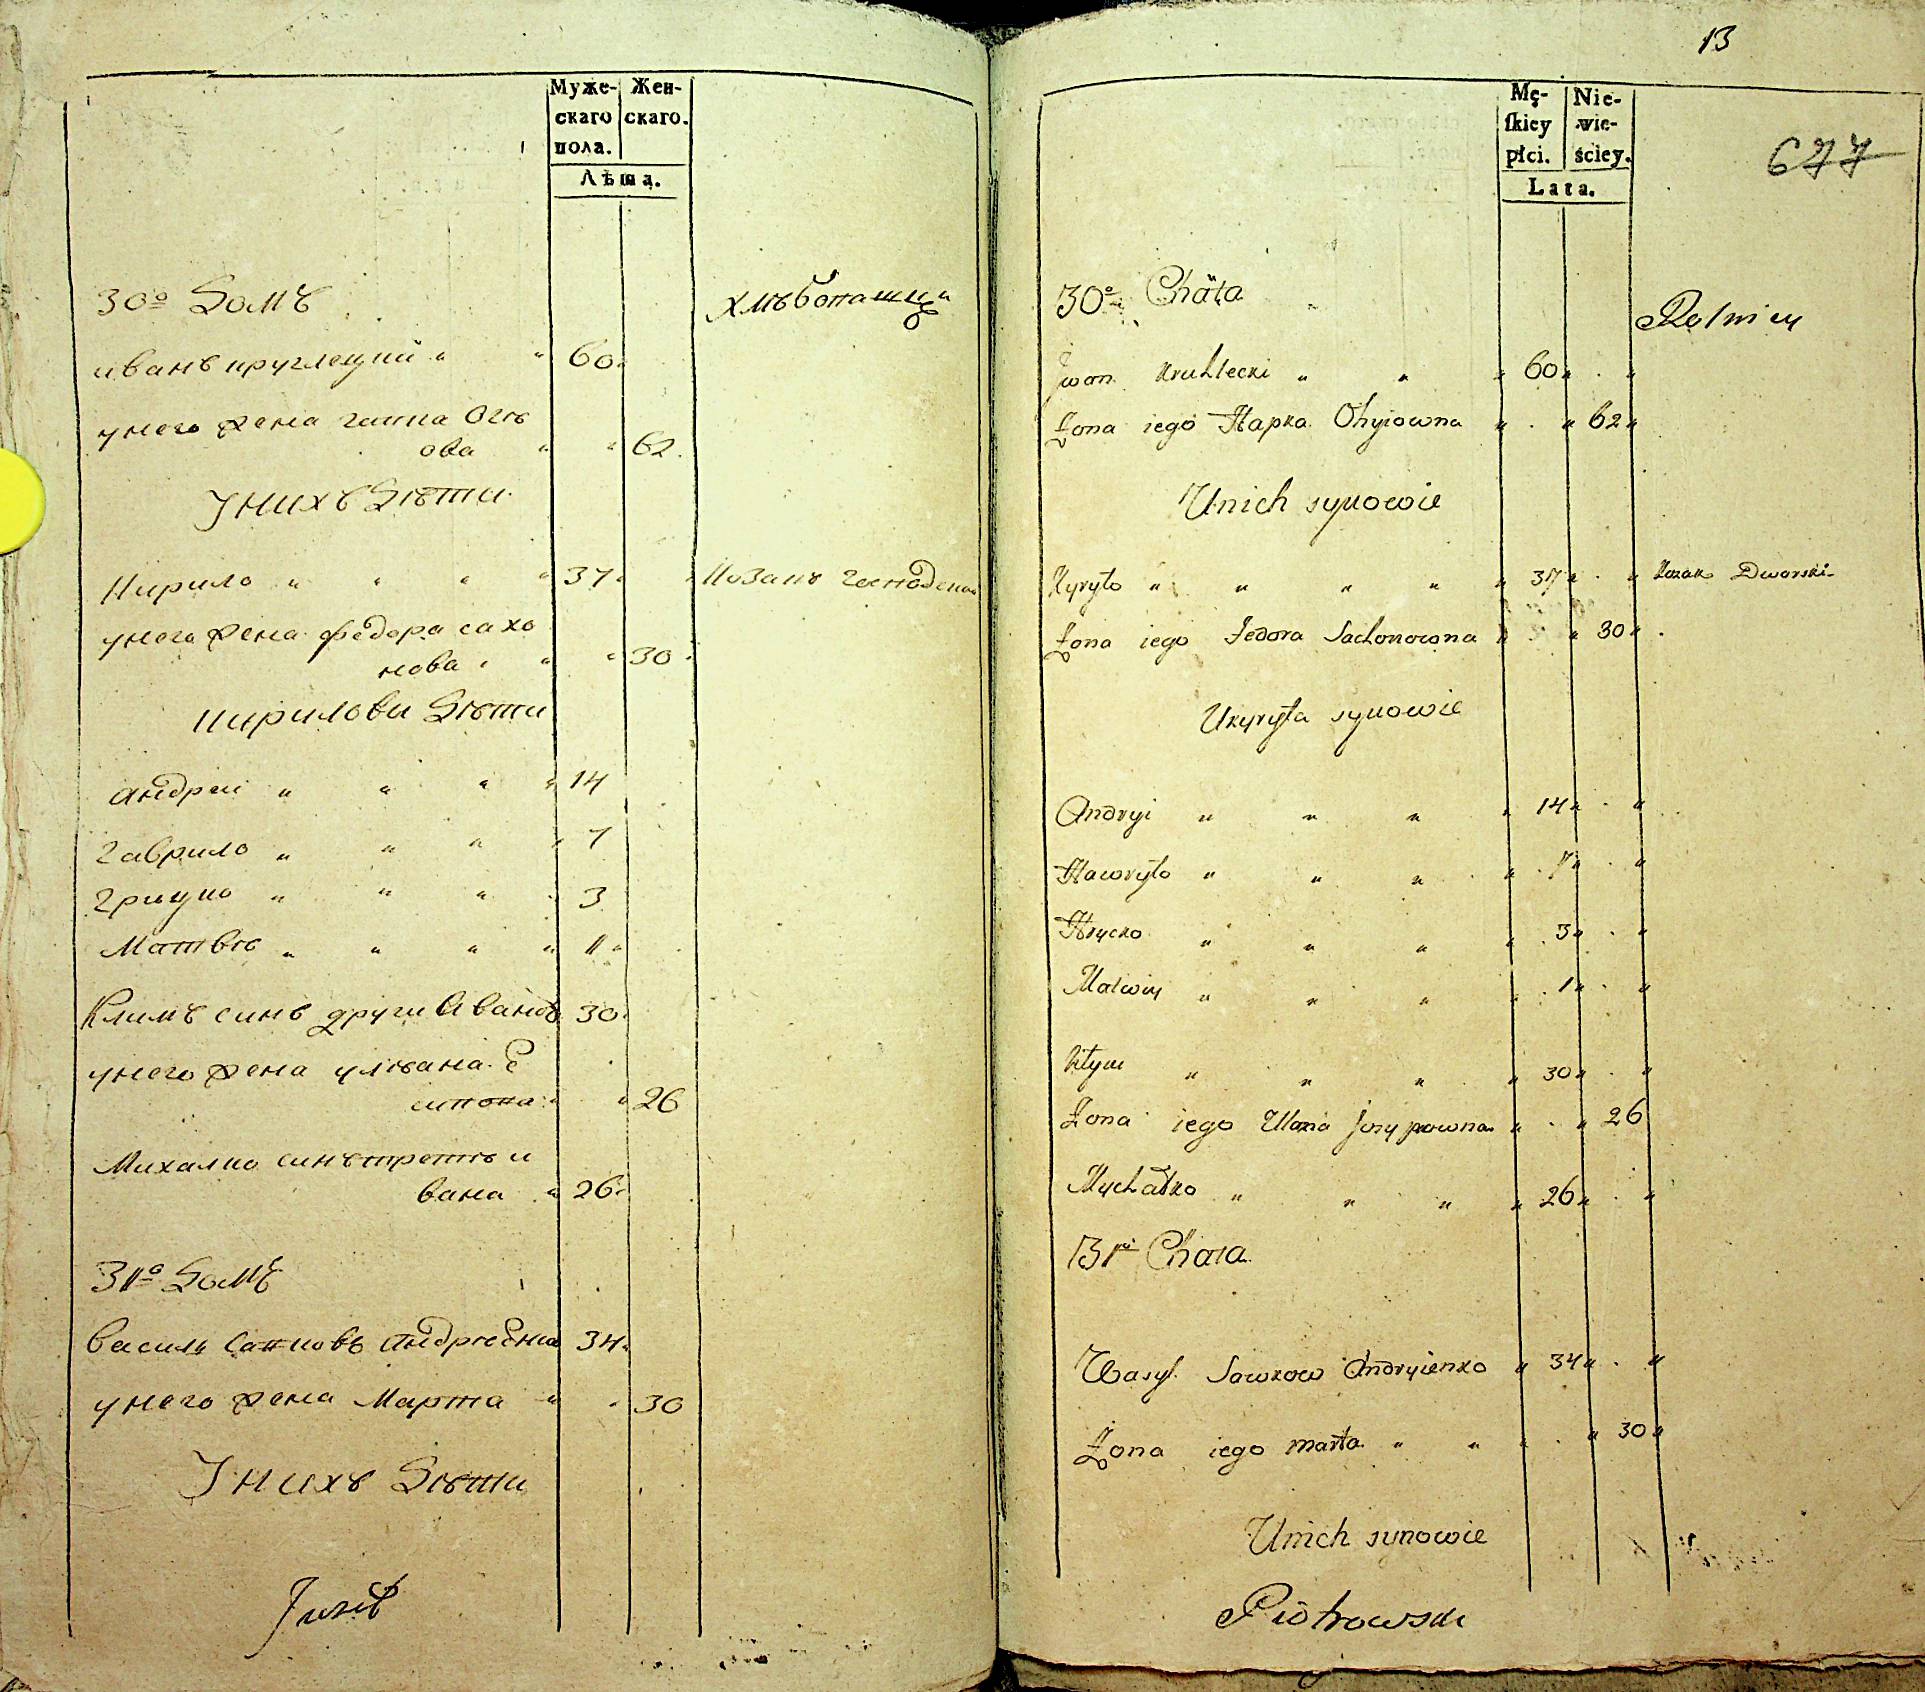 Муже- Жен-
скаго скаго.
пола.
Лѣта.
30о Домъ хлѣбопашцы
иванъ круглецкий " " 60 "
унего жена гапка Огѣ
ова " " 62
Унихъ Дѣти
Кирило " " " " 37 " " Козакъ Господски
унего жена федора сахо
нова " " " 30 "
Кирилови Дѣти
андреи " " " " 14
гаврило " " " " 7
грицко " " " 3
Матвѣ " " " " 1 "
Климъ синъ други Ивановъ 30 "
унего жена улѣана
" " 26
Михалко синъ третѣ и
вана " 26 "
31о Домъ
василь Савковъ андрѣенко 34 "
унего жена Марта " " 30
Унихъ Дѣти
Jozef
13
Mę- Nie-
ſkiey wie-
płci. ściey.
Lata.
677
30a Chata
Rolnicy
Jwan Kruhlecki " " " 60 " . "
Żona iego Hapka Ohyiowna " . " 62 "
Unich synowie
Kyryło " " " " " 37 " . " Kozak Dworski
Żona iego Fedora Sachonowna " " 30 " .
Ukyryła synowie
Andryi " " " " 14 " . "
Hawryło " " " " 7 " . "
Hrycko " " " " 3 " . "
Matwiy " " " " 1 " . "
Kłym " " " " 30 " . "
Żona iego Ulana Josypowna " . " 26
Mychałko " " " " 26 " . "
31a Chata
Wasyl Sawkow Andryienko " 34 " . "
Żona iego marta " " " . " 30 "
Unich synowie
Piotrowski